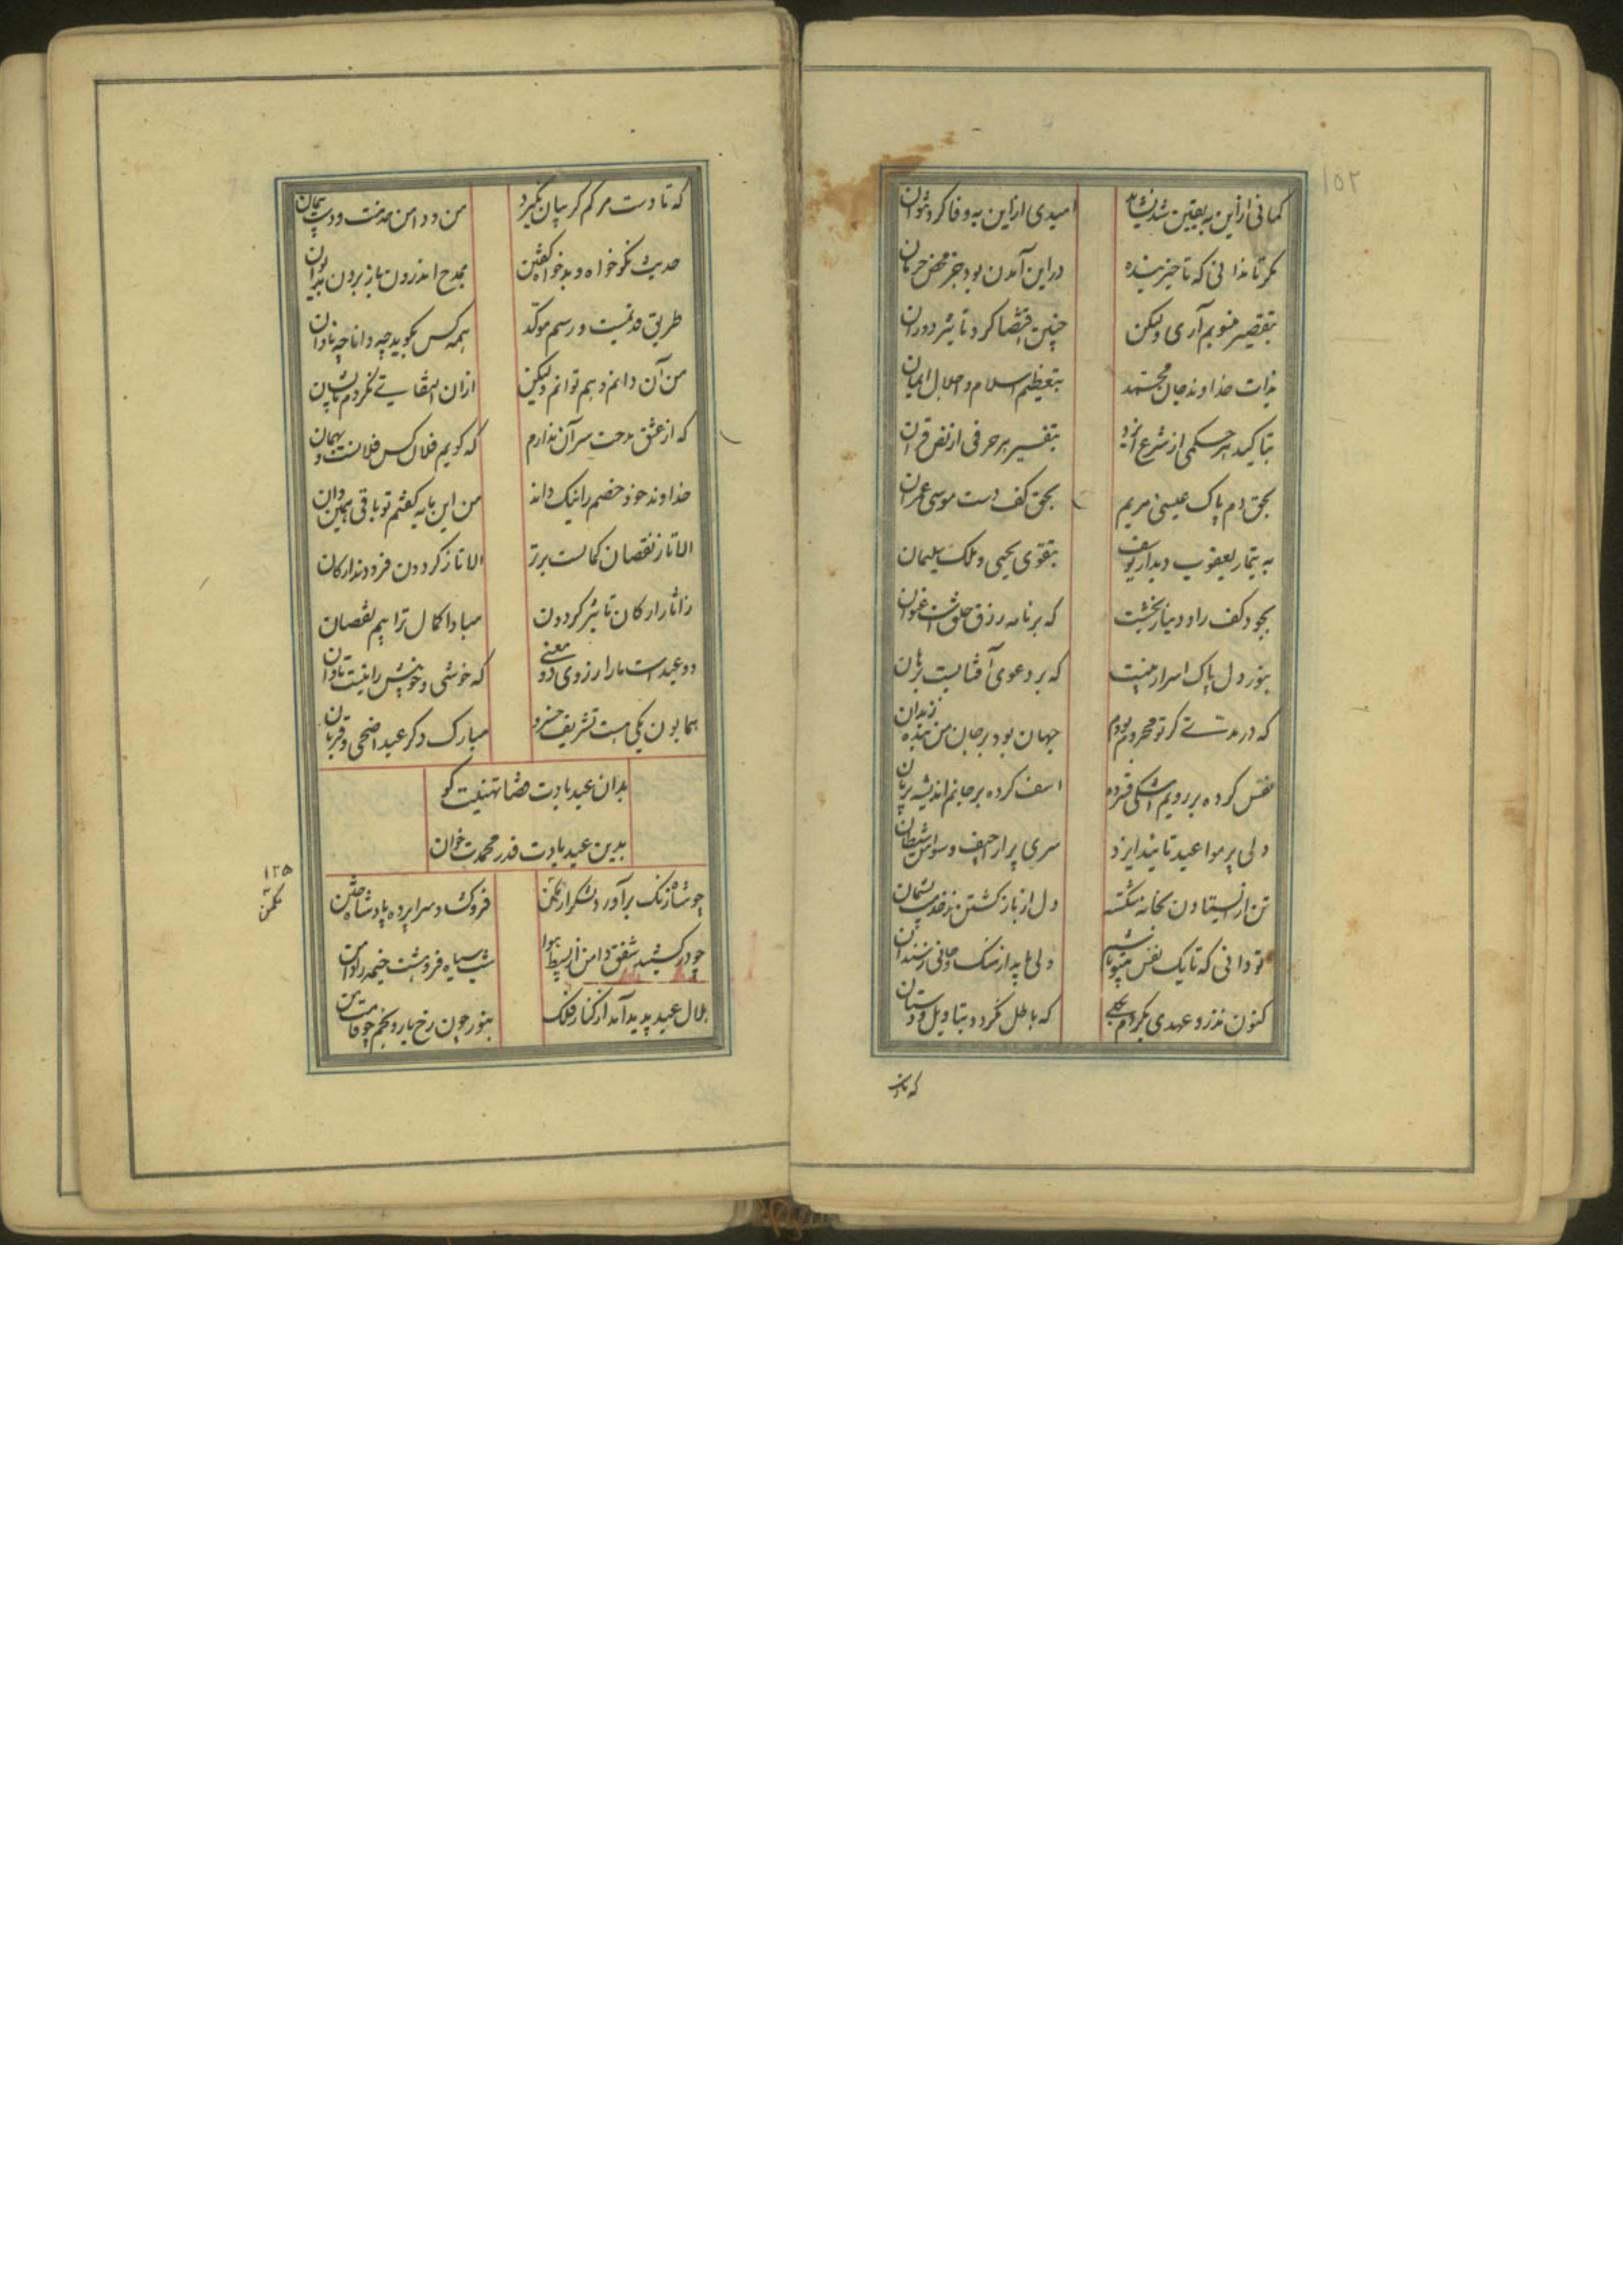 ۱۵۲
کمانی از این به یقین شد نشاید امیدی از این به وفا کرد نتوان
مکر تا ندانی که تا خیر بنده در این آمدن بود جز محض حرمان
بتقصیر منسوبم آری ولیکن چنین اقتضا کرد تاثیر دوران
بذات خداوند و جان محمد بتعظیم اسلام و اجلال ایمان
بتاکید هر حکمی از شرع ایزد بتفسیر هر حرفی از نص قران
بحق دم پاک عیسی مریم بحق کف دست موسی عمران
به تیمار یعقوب و دیدار یوسف بتقوی یحیی و ملک سلیمان
بجود کف راد و دینار بخشت که بر نامه رزق خلقست عنوان
بنور دل پاک اسرار بینت که بر دعوی آفتابیست برهان
که در مدتی کز تو محروم بودم جهان بود بر جان من بنده زندان
نفس کرده بر رویم اشکی فسرده اسف کرده بر جانم اندیشه بریان
دلی پر مواعید تائید ایزد سری پر اراجیف و وسواس شیطان
تن از ایستادن بخانه شکسته دل از باز کشتن ز خدمت پشیمان
تو دانی که تا یک نفس بیتو باشم دلی باید از سنک و جانی ز سندان
کنون نذر و عهدی بکردم که باطل نکردد بتاویل و دستان
که تا دست
که تا دست مرکم کریبان نکیرد من و دامن خدمت و دست پیمان
حدیث نکو خواه و بدخواه کفتن بمدح اندرون باز بردن بدیوان
طریق قدیمست و رسم موکد همه کس بکوید چه دانا چه نادان
من آن دانم و هم توانم ولیکن ازان التفاتی نکردم بایشان
که از عشق مدحت سر آن ندارم که کویم فلان کس فلانست و بهمان
خداوند خود خصم را نیک داند من این مایه کفتم تو باقی همیدان
الا تا ز نقصان کمالست برتر الا تا ز کردون فرودند ارکان
ز اثار ارکان تاثیر کردون مبادا کمال ترا بیم نقصان
دو عیدست ما را ز روی دو معنی که خوشی و خوبیش را نیست تاوان
همایون یکی هست تشریف خسرو مبارک دکر عید اضحی و قربان
بدان عید بادت قضا تهنیت کو
بدین عید بادت قدر محمدت خوان
۱۲۵
چو شاه زنک برآورد لشکر از مکمن فروکشاد سراپرده پادشاه ختن
چو درکشید شفق دامن از بسیط هوا شب سیاه فروهشت خیمه را دامن
هلال عید پدید آمد از کنار فلک بنور چون رخ یار و بخم چو قامت من